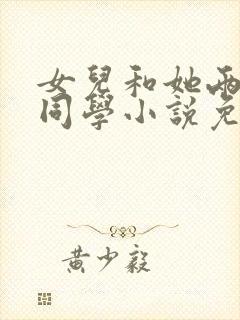 女兒和她兩
同學小說免
黃少毅